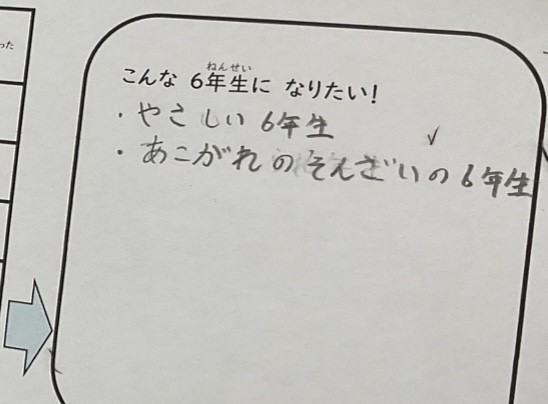 った
ねんせい
こんな 6年生に なりたい!
・やさしい 6年生
・あこがれのそんざいの6年生